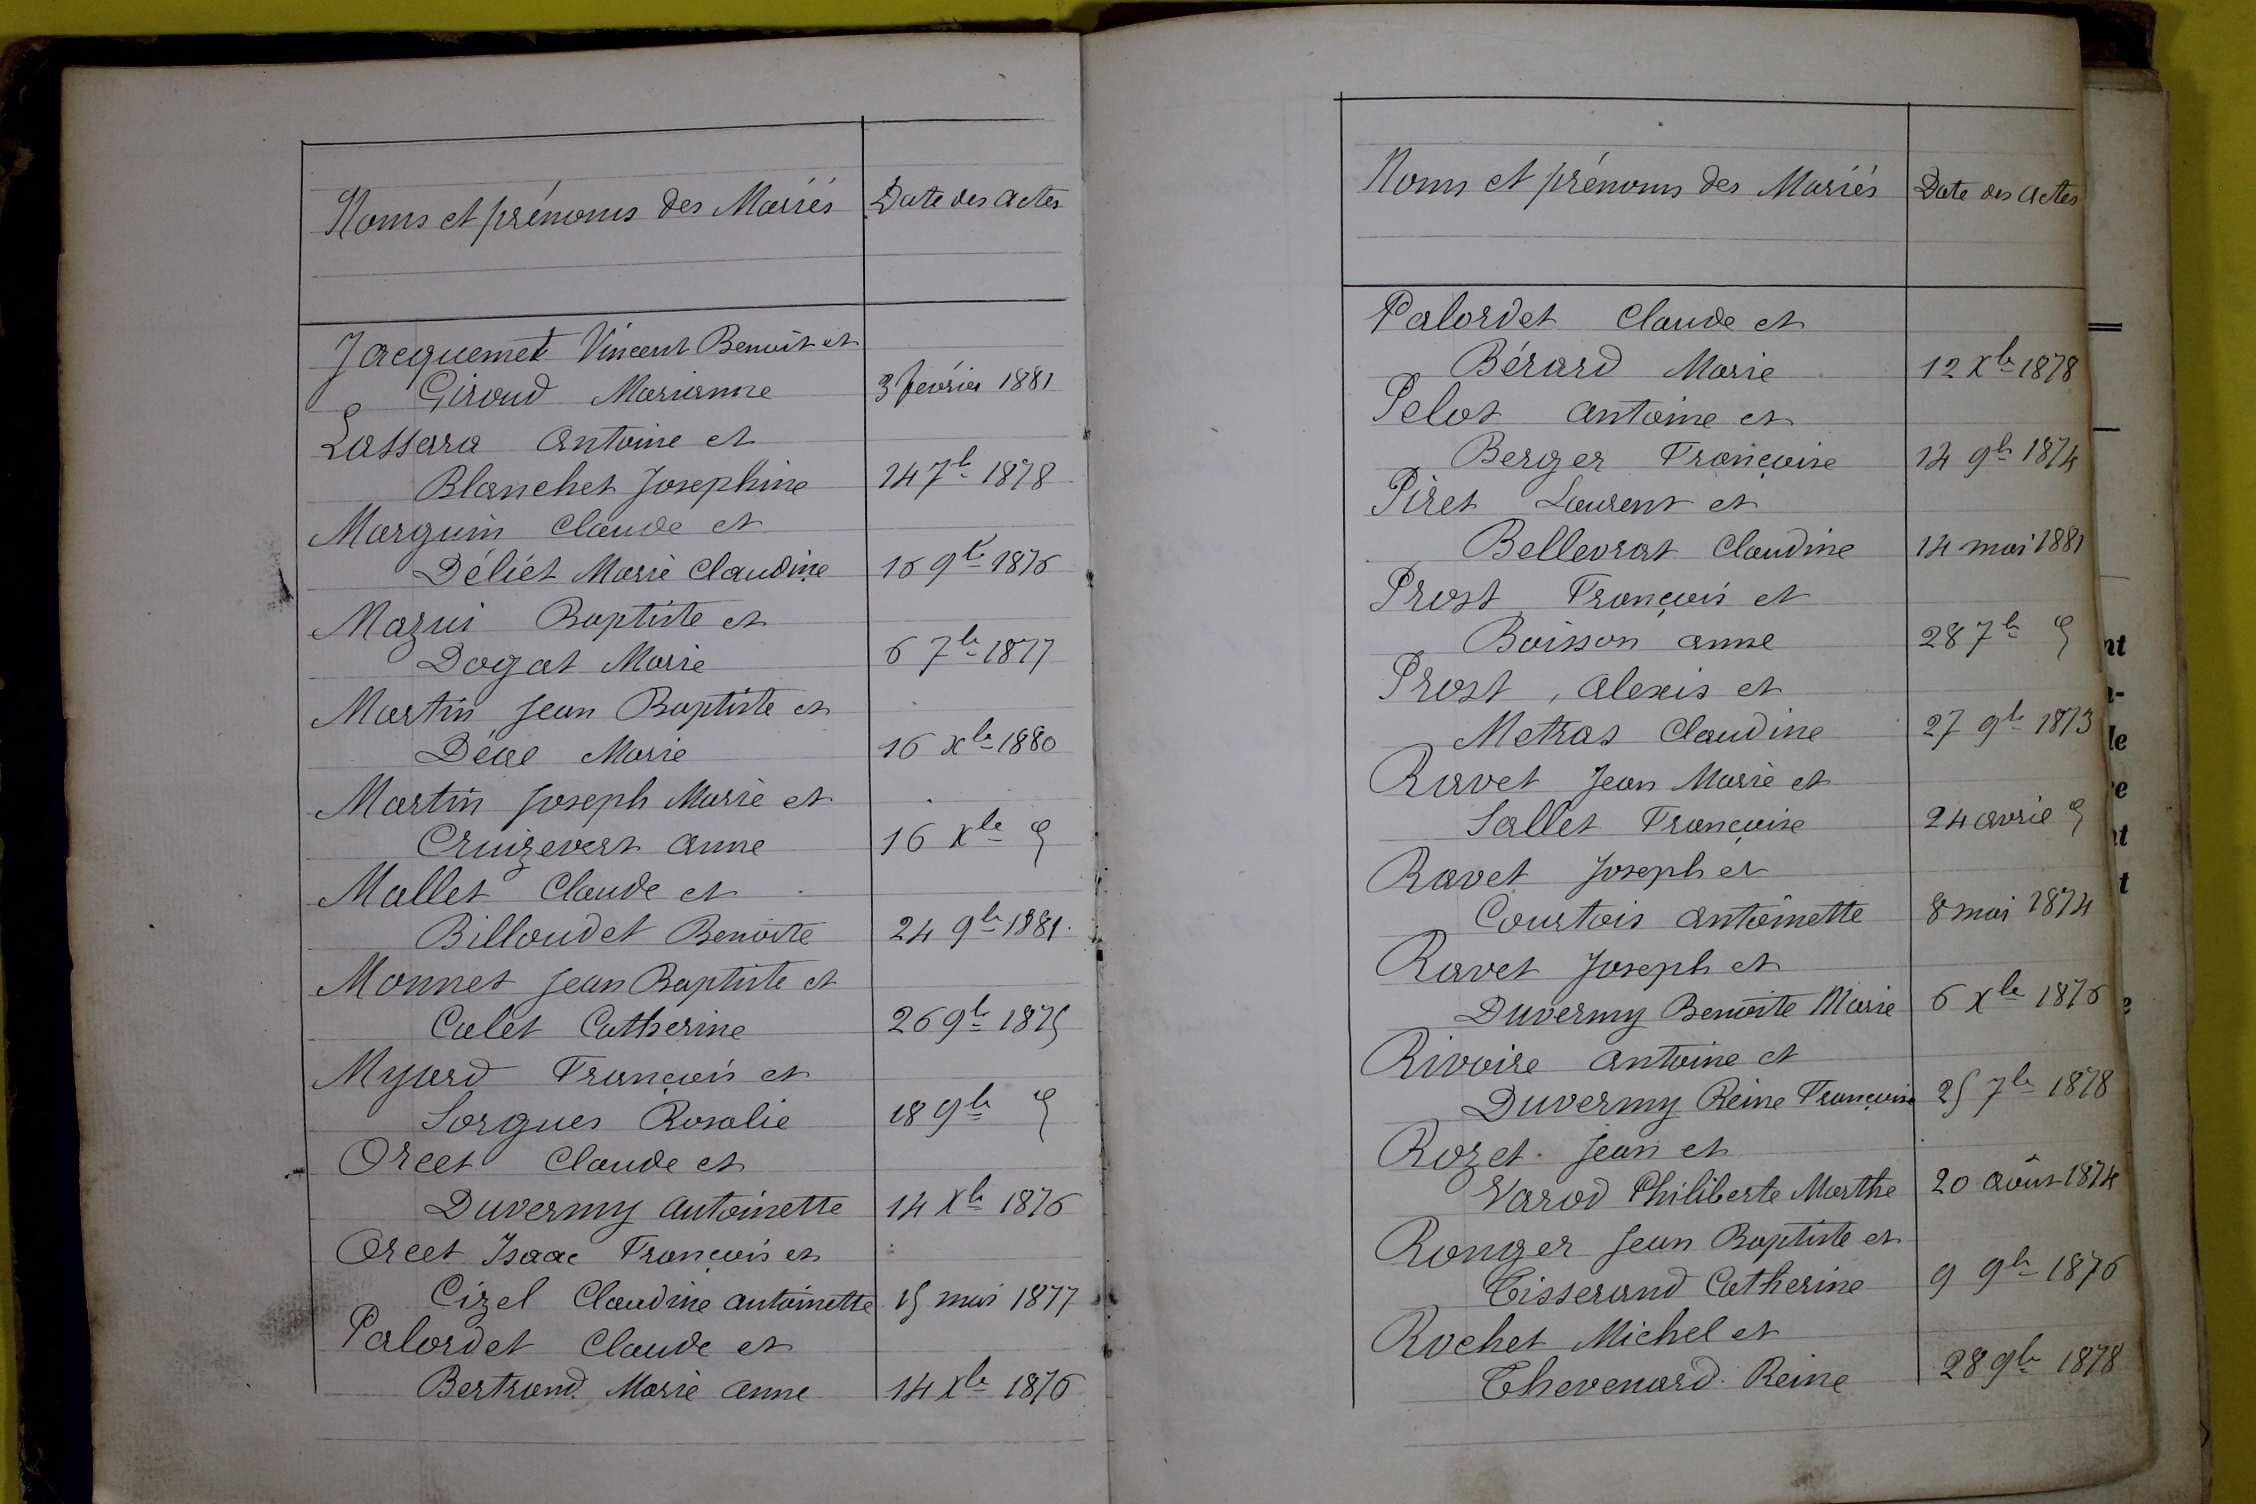 Noms et prénoms des Mariés Date des actes
Jacquemet Vincent Benoit et
Giroud Marianne 3 février 1881
Lassara Antoine et
Blanchet Josephine 24 7b 1878
Marguin Claude et
Déliét Marie Claudine 16 9b 1876
Mazui Baptiste et
Dogat Marie 6 7b 1877
Martin Jean Baptiste et
Déal Marie 16 xb 1880
Martin Joseph Marie et
Cruizevert Anne 16 xb
Mallet Claude et
Billoudet Benoite 24 9b 1881
Monnet Jean Baptiste et
Calet Catherine 26 9b 1875
Myard François et
Sorgues Rosalie 18 9b
Orcet Claude et
Duvermy Antoinette 14 Xb 1876
Orcet Isaac François et
Cizel Claudine Antoinette 15 mai 1877
Palordet Claude et
Bertrand Marie Anne 14 xb 1876
Noms et prénoms des Mariés Date des actes
Palordet Claude et
Bérard Marie 12 Xb 1878
Pelot Antoine et
Berger Françoise 14 9b 1874
Piret Laurent et
Bellevrat Claudine 14 mai 1881
Prost François et
Boisson Anne 28 7b
Prost Alexis et
Metras Claudine 27 9b 1873
Ravet Jean Marie et
Sallet Françoise 24 avril
Ravet Joseph et
Courtois Antoinette 8 mai 1874
Ravet Joseph et
Duvermy Benoite Marie 6 xb 1876
Rivoire Antoine et
Duvermy Reine Françoise 25 7b 1878
Rozet Jean et
Varod Philiberte Marthe 20 août 1874
Ronger Jean Baptiste et
Tisserand Catherine 9 9b 1876
Rochet Michel et
Thevenard Reine 28 9b 1878
nt
le